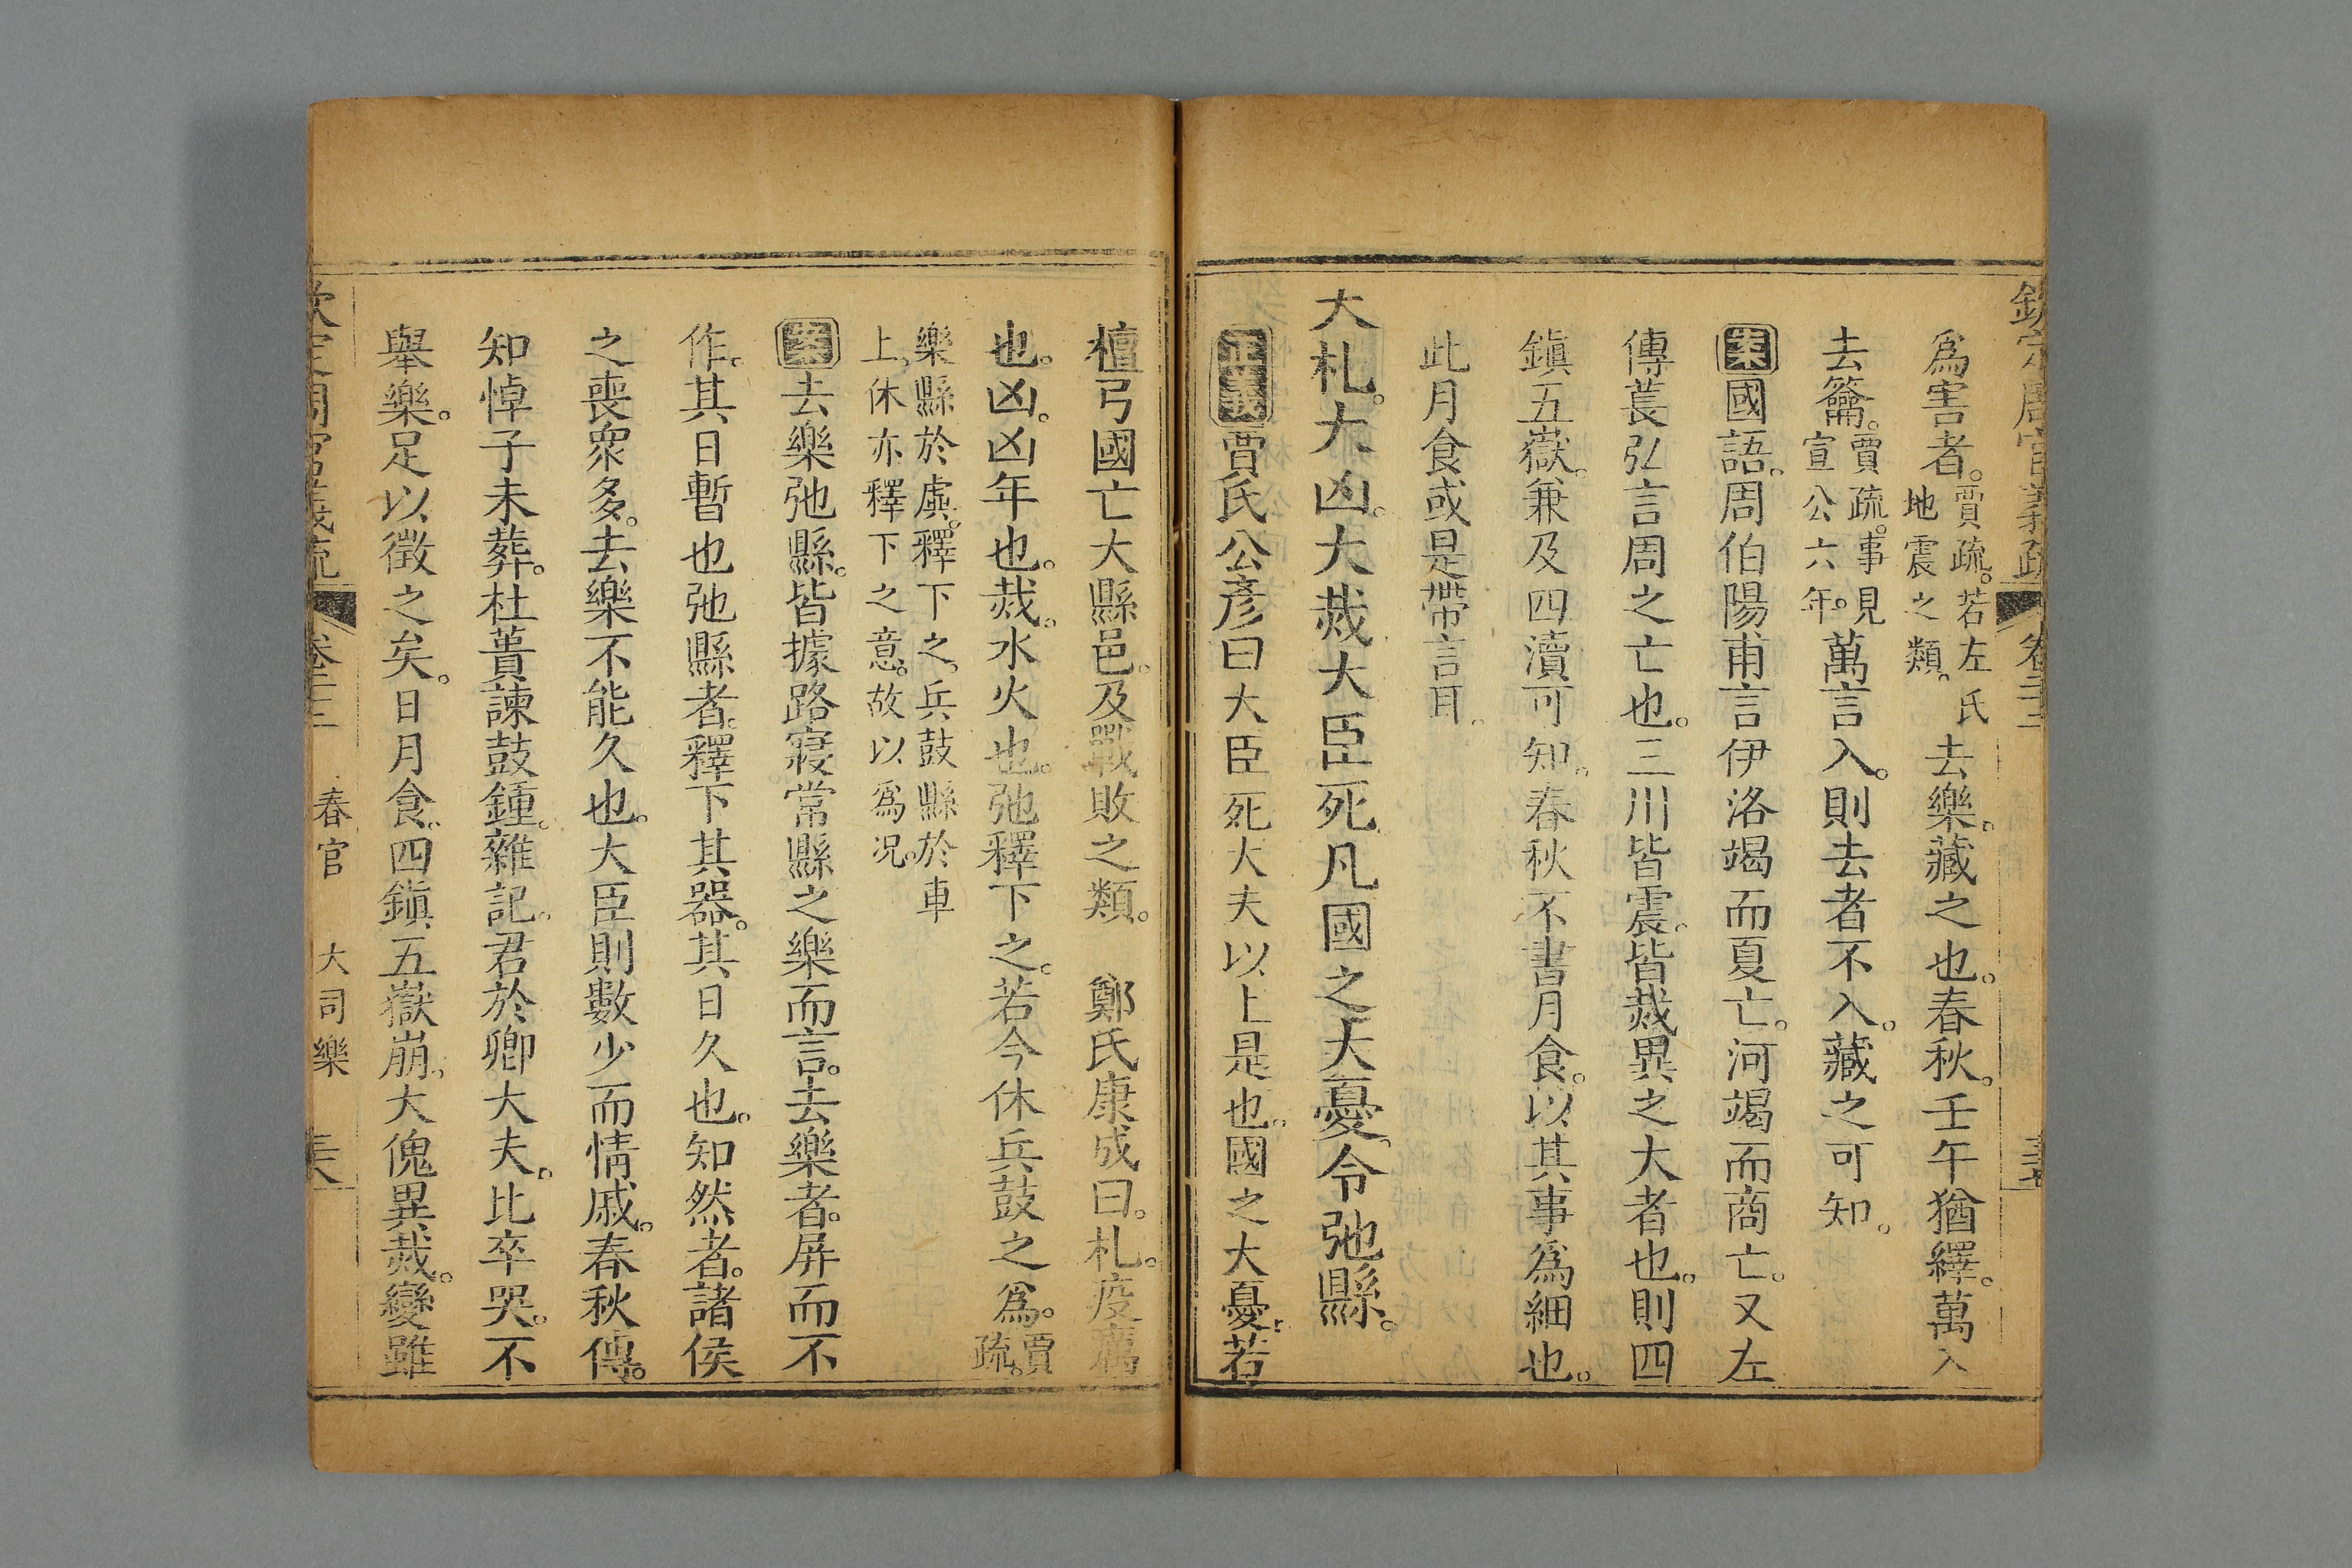 爲害者。賈疏。若左氏地震之類。去樂。藏之也。春秋。壬午猶繹。萬入
去籥。賈疏。事見宣公六年。萬言入。則去者不入。藏之可知。
案國語。周伯陽甫言伊洛竭而夏亡。河竭而商亡。又左
傳萇弘言周之亡也。三川皆震。皆烖異之大者也。則四
鎭五嶽。兼及四瀆可知。春秋不書月食。以其事爲細也。
此月食或是帶言耳。
大札。大凶。大烖大臣死凡國之大憂令弛縣。
正義賈氏公彥曰大臣死大夫以上是也。國之大憂。若
檀弓國亡大縣邑。及戰敗之類。 鄭氏康成曰。札。疫癘
也。凶。凶年也。烖。水火也。弛釋下之。若今休兵鼓之爲。賈疏。
樂縣於虡。釋下之。兵鼓縣於車上。休亦釋下之意。故以爲况。
案去樂弛縣。皆據路寢常縣之樂而言。去樂者。屏而不
作。其日暫也弛縣者。釋下其器。其日久也。知然者。諸侯
之喪衆多。去樂不能久也。大臣則數少而情戚。春秋傳。
知悼子未葬。杜蕢諫鼓鍾。雜記。君於卿大夫。比卒哭。不
舉樂。足以徵之矣。日月食。四鎭五嶽崩。大傀異烖。變雖
欽定周官義疏 卷二十二 春官 大司樂